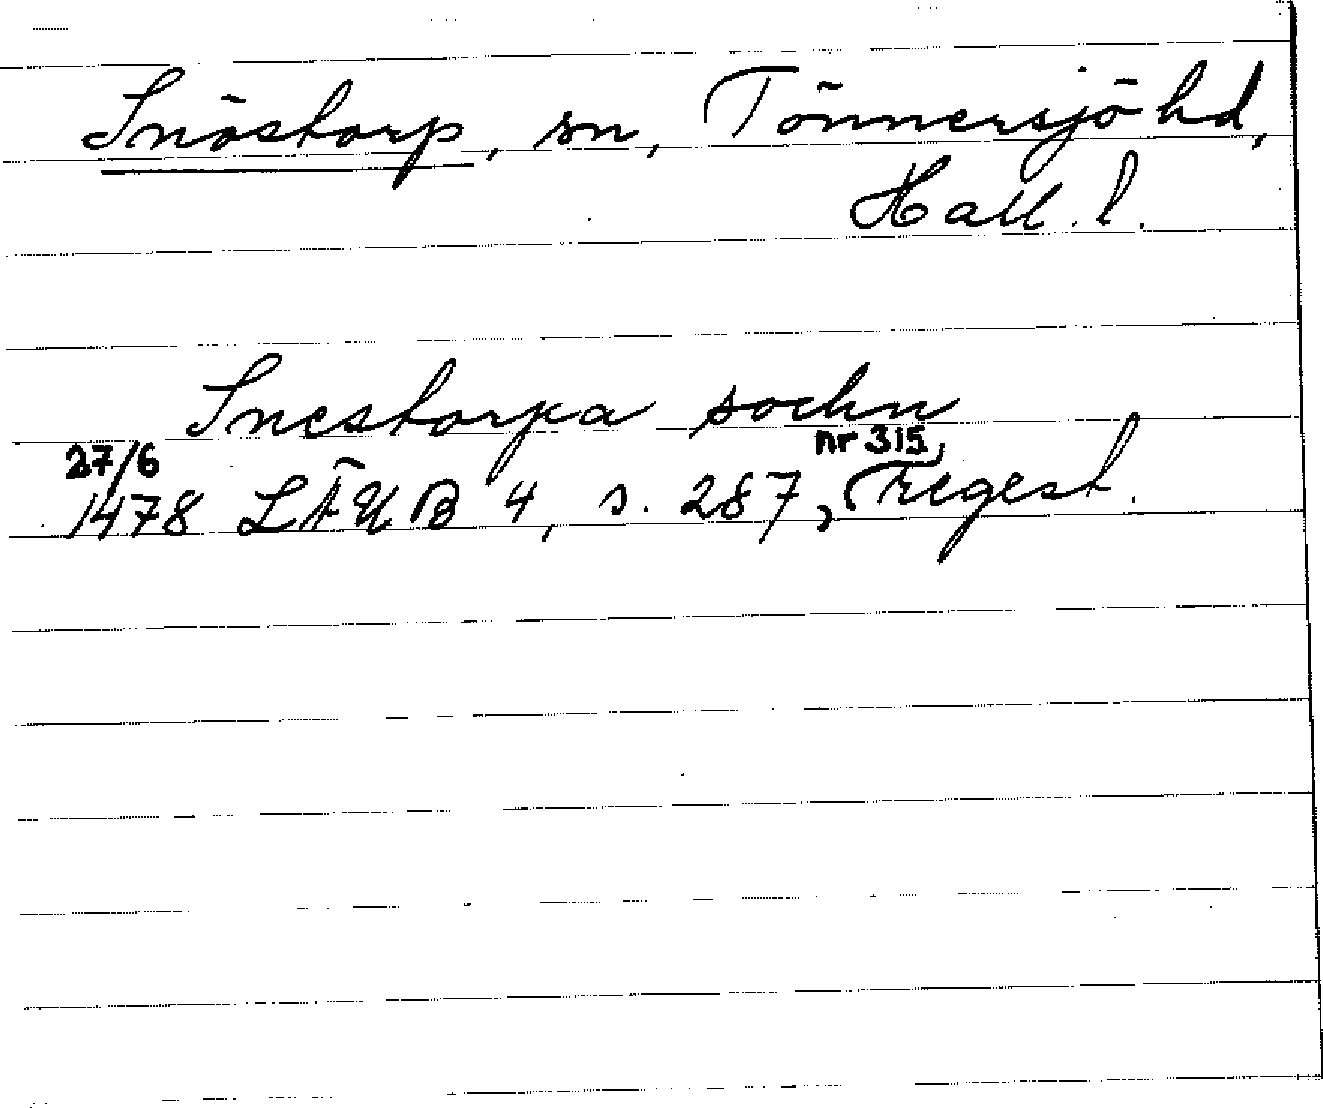 Snöstorp, sn, Tönnersjö hd,
Hall. l.
Snestorpa sochn
27/6 nr 315,
1478 LÄUB 4, s. 287, Regest.